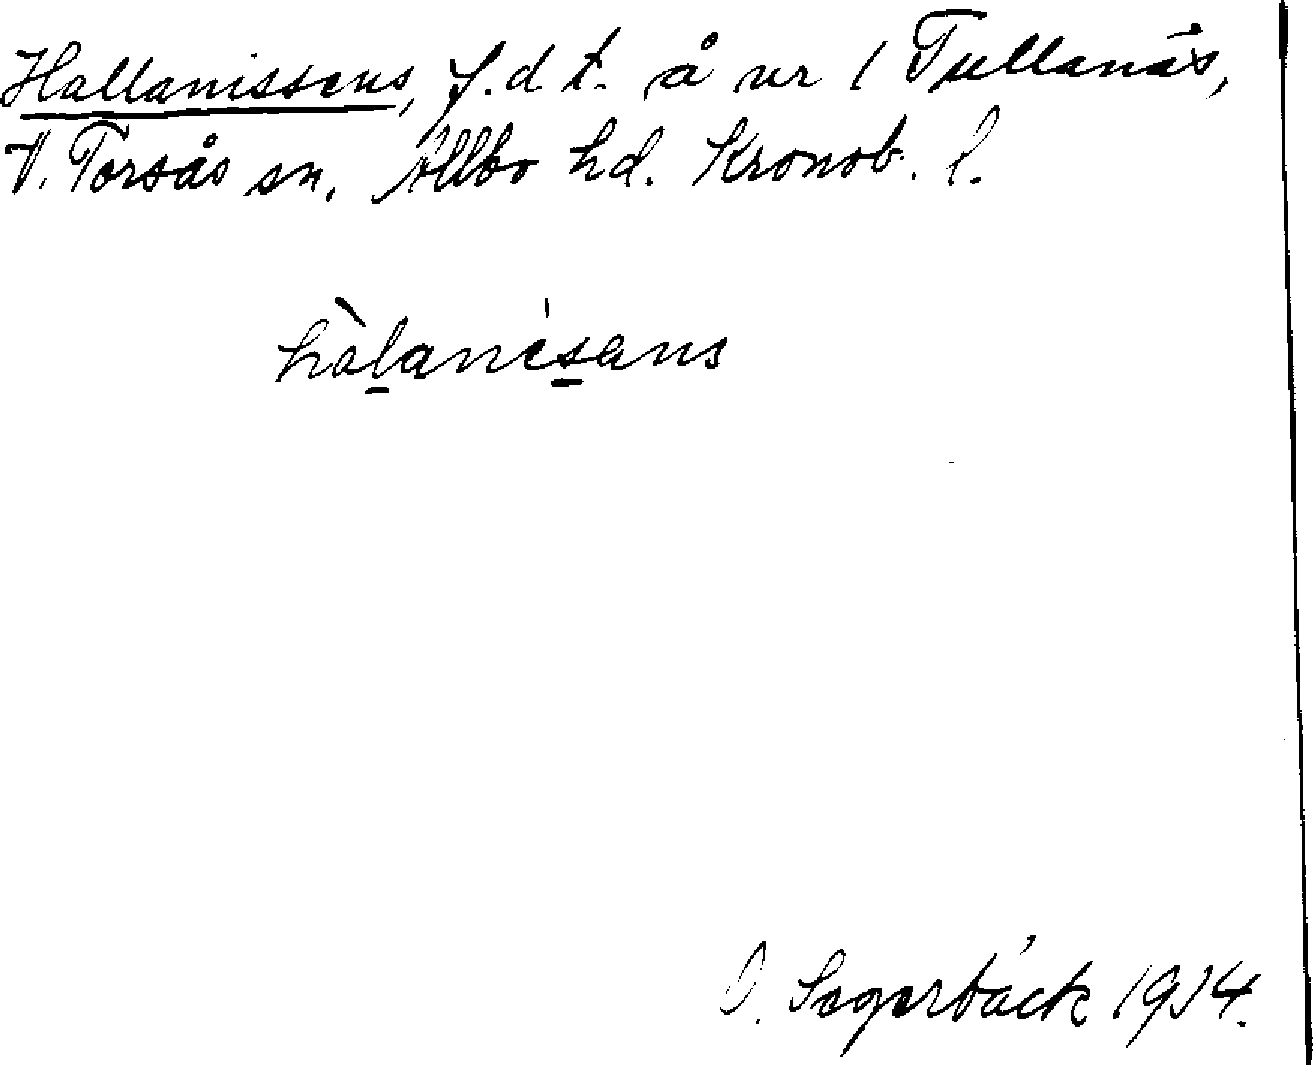 Hallanissens, f.d. t. å nr 1 Tullanäs,
V. Torsås sn, Allbo hd. Kronob. l.
hàlanisans
O. Sagerbäck 1914.